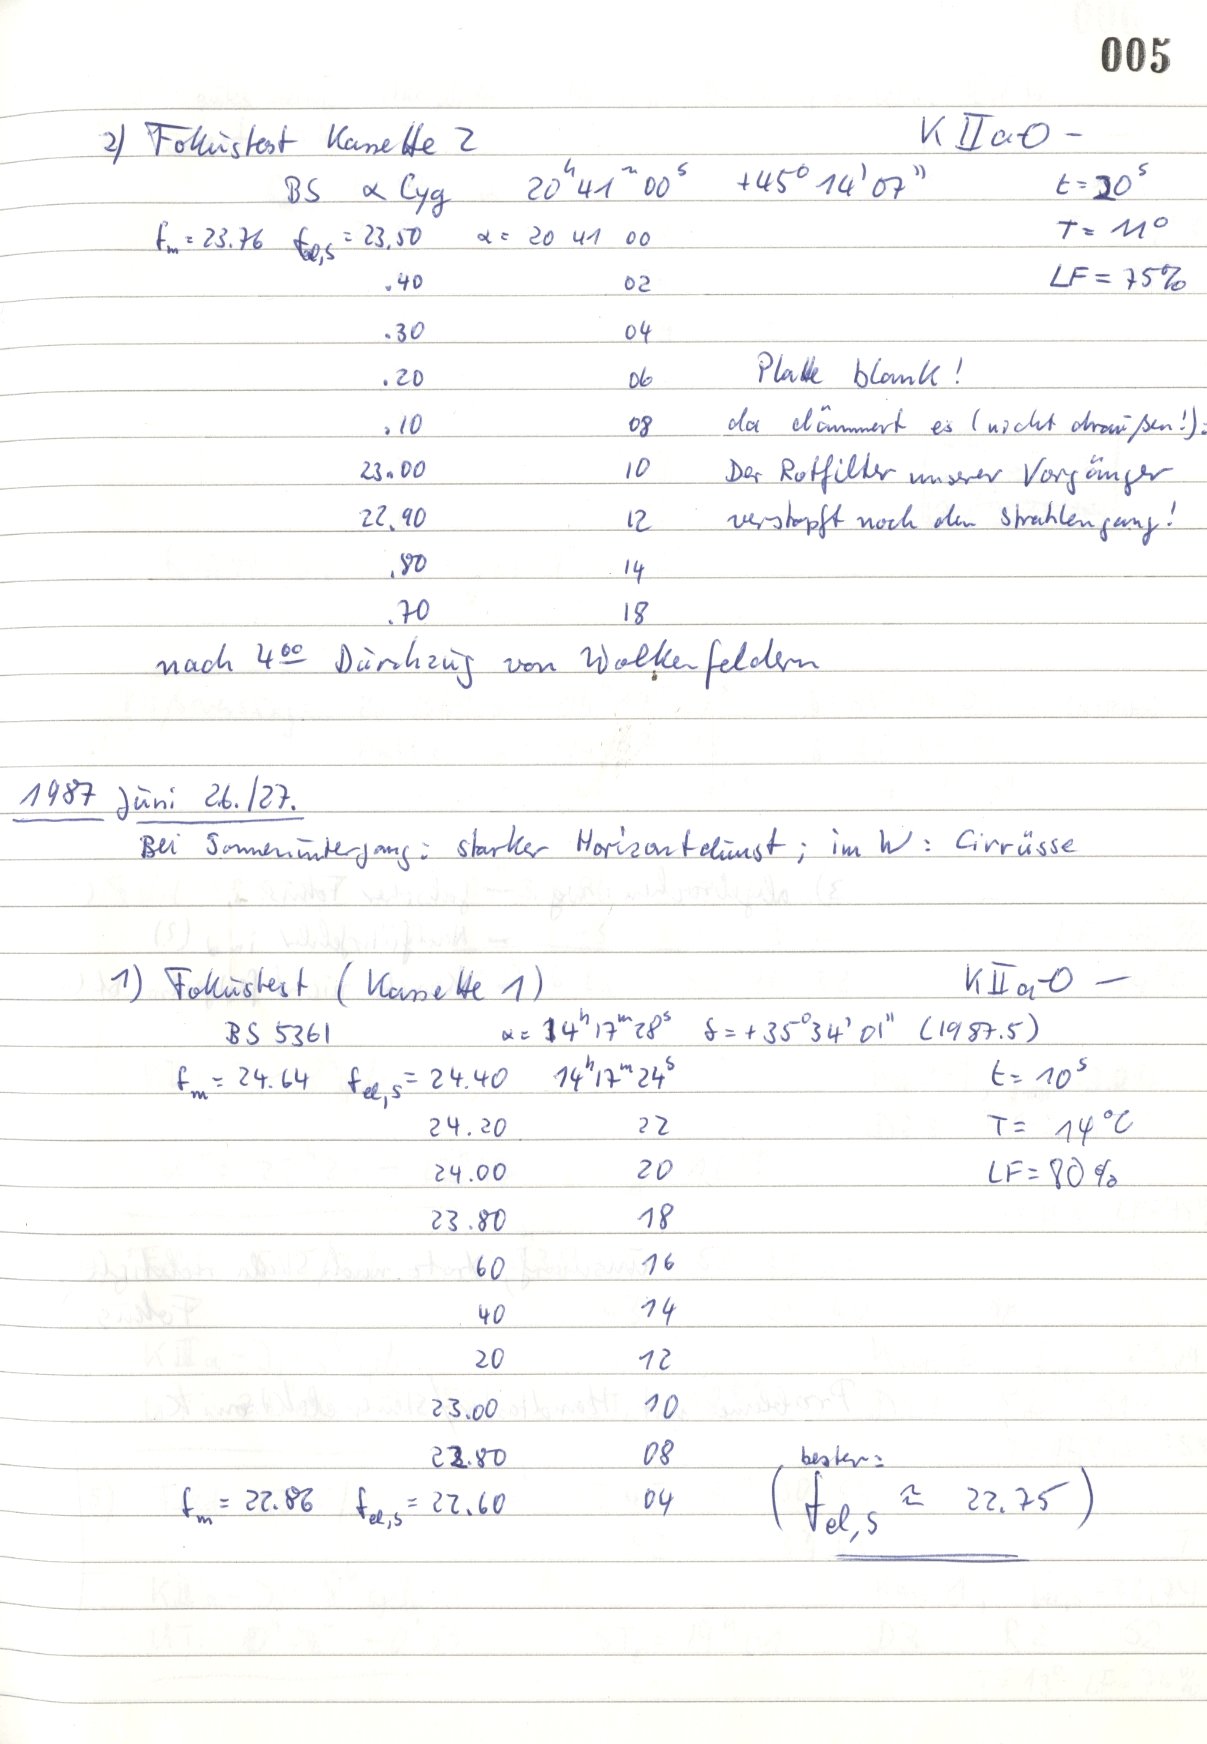 005
2) Fokustest Kassette 2 K IIaO -
BS α Cyg 20ʰ41ᵐ00ˢ +45° 14' 07" t = 20ˢ
fₘ = 23.76 f_el,s = 23.50 α = 20 41 00 T = 11°
.40 02 LF = 75%
.30 04
.20 06 Platte blank!
.10 08 da dämmert es (nicht draußen!):
23.00 10 Der Rotfilter unserer Vorgänger
22.90 12 verstopft noch den Strahlengang!
.80 14
.70 18
nach 4⁰⁰ Durchzug von Wolkenfeldern
1987 Juni 26./27.
Bei Sonnenuntergang: starker Horizontdunst; im W: Cirrusse
1) Fokustest (Kassette 1) K IIa-O -
BS 5361 α = 14ʰ17ᵐ28ˢ δ = +35°34'01" (1987.5)
fₘ = 24.64 f_el,s = 24.40 14ʰ17ᵐ24ˢ t = 10ˢ
24.20 22 T = 14°C
24.00 20 LF = 80%
23.80 18
60 16
40 14
20 12
23.00 10
22.80 08 bester:
fₘ = 22.86 f_el,s = 22.60 04 (f_el,s ≈ 22.75)